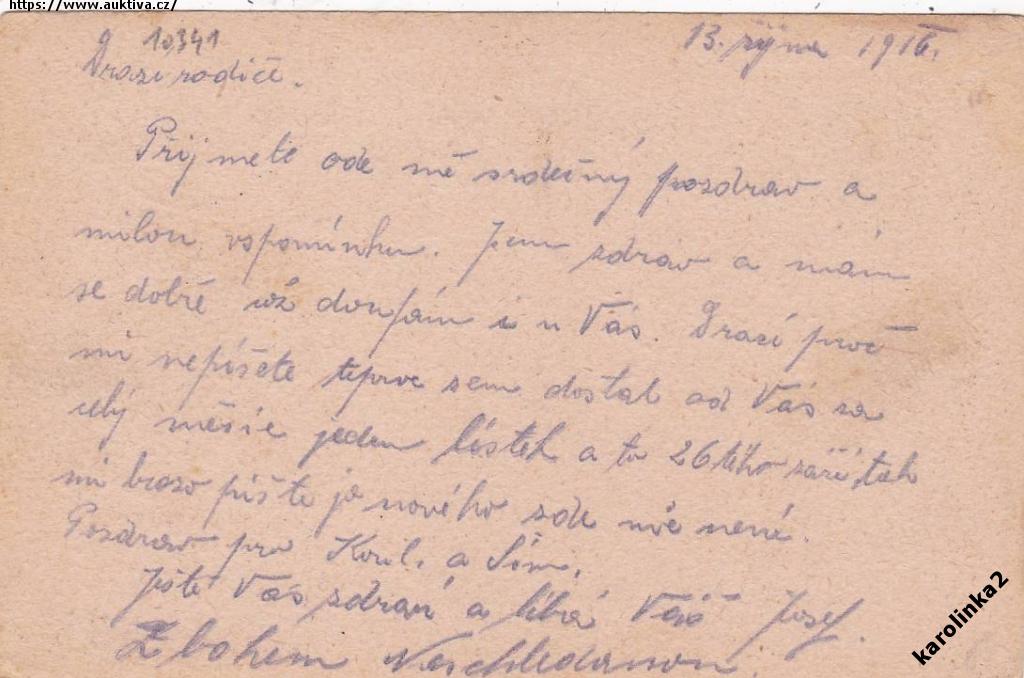 https://www.auktiva.cz/
10,341
13. října 1916.
Drazí rodiče.
Přijmete ode mě srdečný pozdrav a
milou vzpomínku. Jsem zdráv a mám
se dobře což doufám i u Vás. Drazí proč
mi nepíšete teprve sem dostal od Vás za
celý měsíc jeden lístek a to 26tého září, tak
mi brzo pište jo nového zde nic není.
Pozdrav pro a
Ještě Vás zdraví a líbá Váš Josef.
Z bohem Naschledanou.
karolinka2